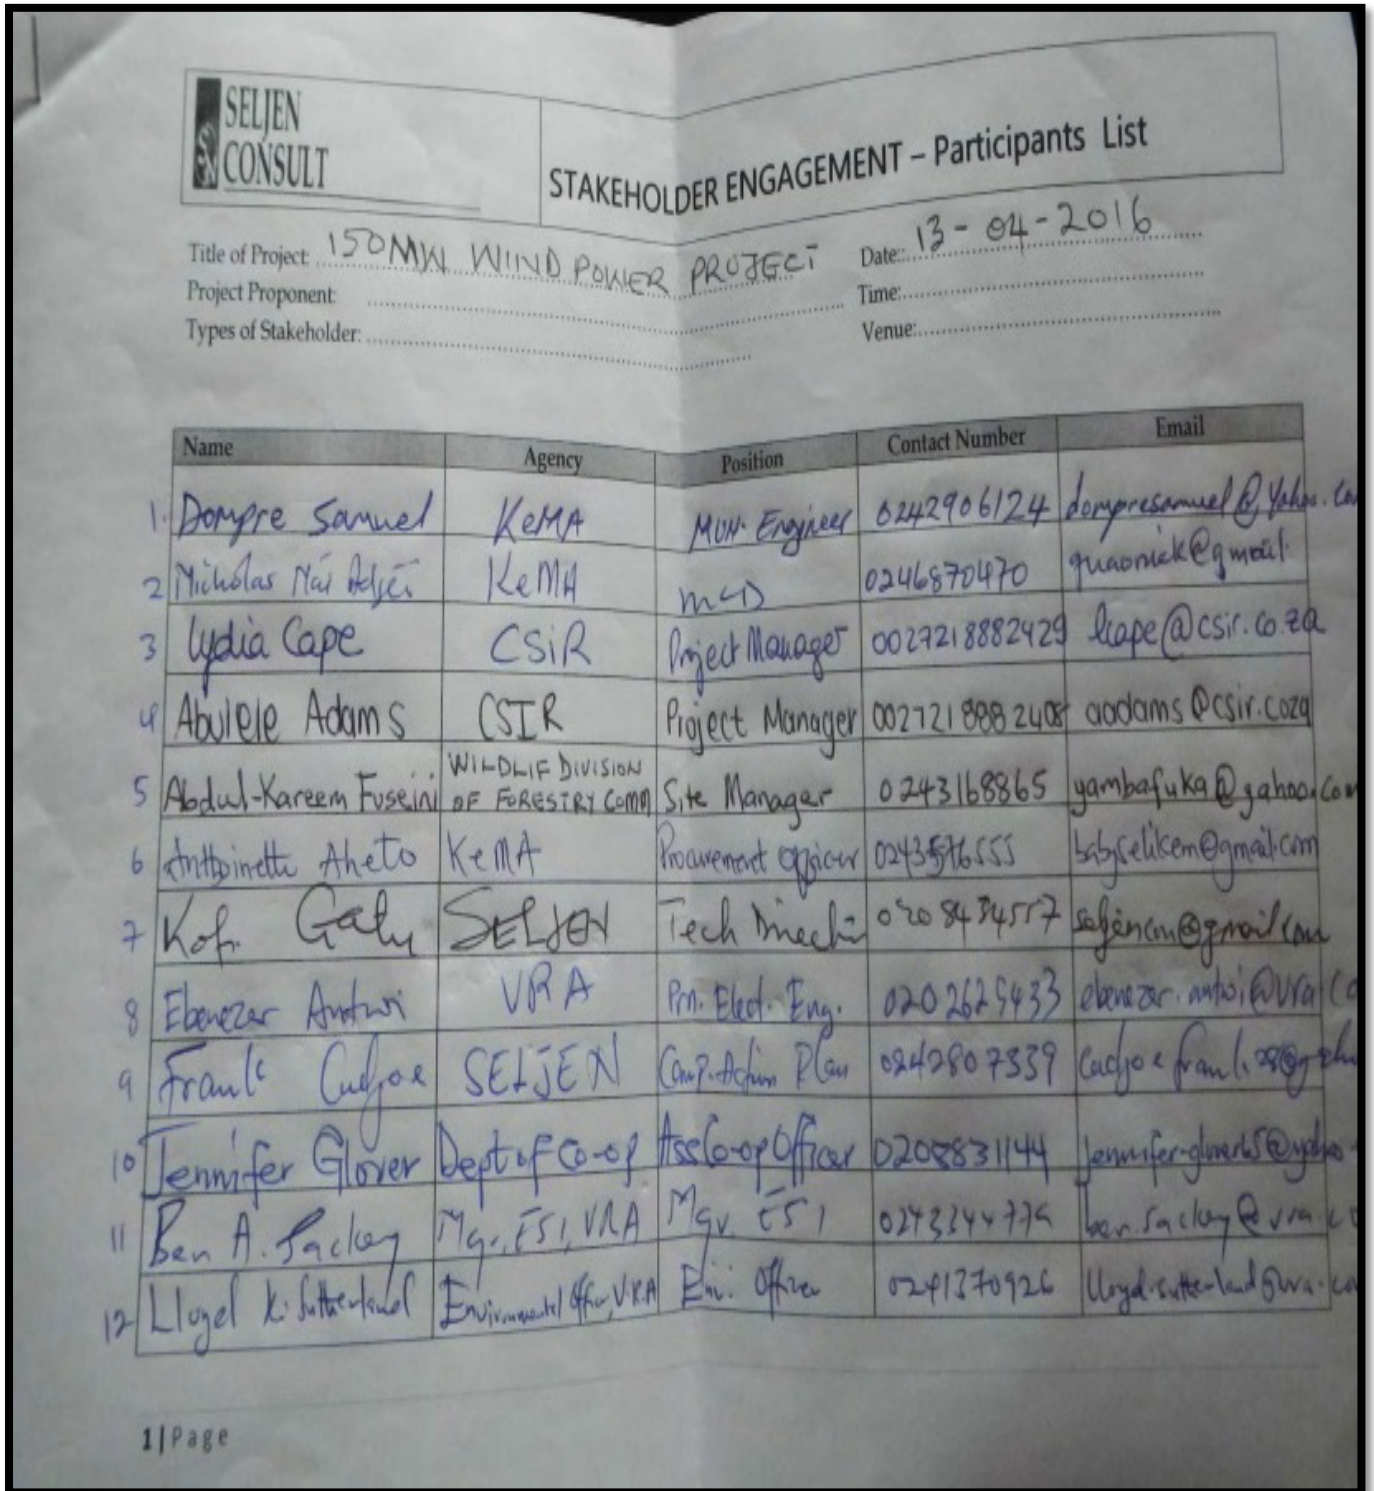 SELJEN
CONSULT
STAKEHOLDER ENGAGEMENT – Participants List
Title of Project: 150MW WIND POWER PROJECT Date: 13-04-2016
Project Proponent: Time:
Types of Stakeholder: Venue:
Name Agency Position Contact Number Email
1. Dompre Samuel KeMA MUN. Engineer 0242906124 dompresamuel@Yahoo.
2 Nicholas Nai Adjei KeMA MCD 0246870470 quaonick@gmail.
3 Lydia Cape CSiR Project Manager 0027218882429 lcape@csir.co.za
4 Abulele Adams CSIR Project Manager 0027218882408 aadams@csir.coza
5 Abdul-Kareem Fuseini WILDLIF DIVISION OF FORESTRY COMM Site Manager 0243168865 yambafuka@yahoo.com
6 Anttoinette Aheto KeMA Procurement Officer 0243576555
7 Kofi SELJEN Tech 0208434557
8 Ebenezar Antwi VRA Prn. Elect. Eng. 0202625433 ebenezar.antwi@vra.co
9 Frank Cudjoe SELJEN Comp. Action Plan 0242807339
10 Jennifer Glover Dept of Co-op Ass Co-op Officer 0208831144
11 Ben A. Sackey Mgr, ESI, VRA Mgr, ESI ben.sackey@vra.co
12 Lloyd K. Sutherland Environmental Officer, VRA Env. Officer 0241370926 lloyd.sutherland@vra.co
1 | Page